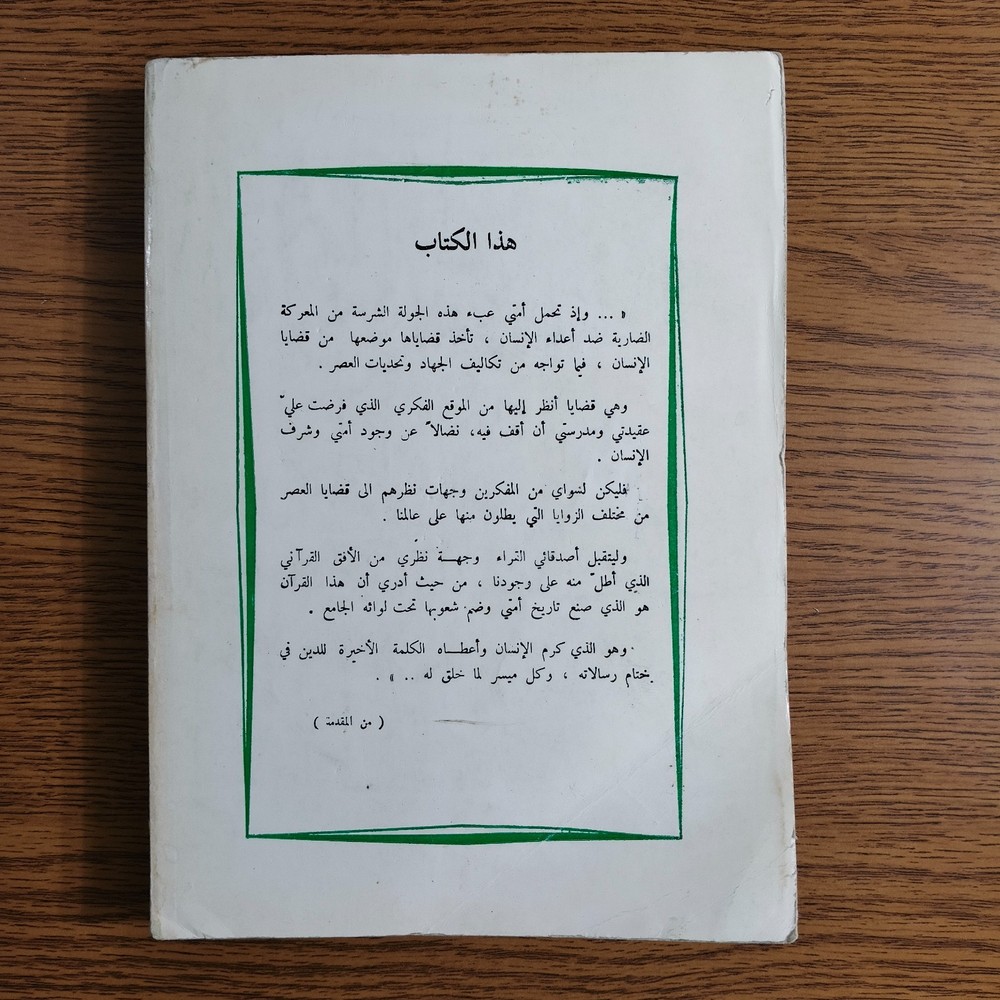 هذا الكتاب
« ... وإذ تحمل أمتي عبء هذه الجولة الشرسة من المعركة
الضارية ضد أعداء الإنسان ، تأخذ قضاياها موضعها من قضايا
الإنسان ، فيما تواجه من تكاليف الجهاد وتحديات العصر .
وهي قضايا أنظر إليها من الموقع الفكري الذي فرضت عليّ
عقيدتي ومدرستي أن أقف فيه، نضالاً عن وجود أمتي وشرف
الإنسان .
فليكن لسواي من المفكرين وجهات نظرهم الى قضايا العصر
من مختلف الزوايا التي يطلون منها على عالمنا .
وليتقبل أصدقائي القراء وجهـة نظري من الأفق القرآني
الذي أطلّ منه على وجودنا ، من حيث أدري أن هذا القرآن
هو الذي صنع تاريخ أمتي وضم شعوبها تحت لوائه الجامع .
وهو الذي كرم الإنسان وأعطـاه الكلمة الأخيرة للدين في
ختام رسالاته ، وكل ميسر لما خلق له .. » .
( من المقدمة )